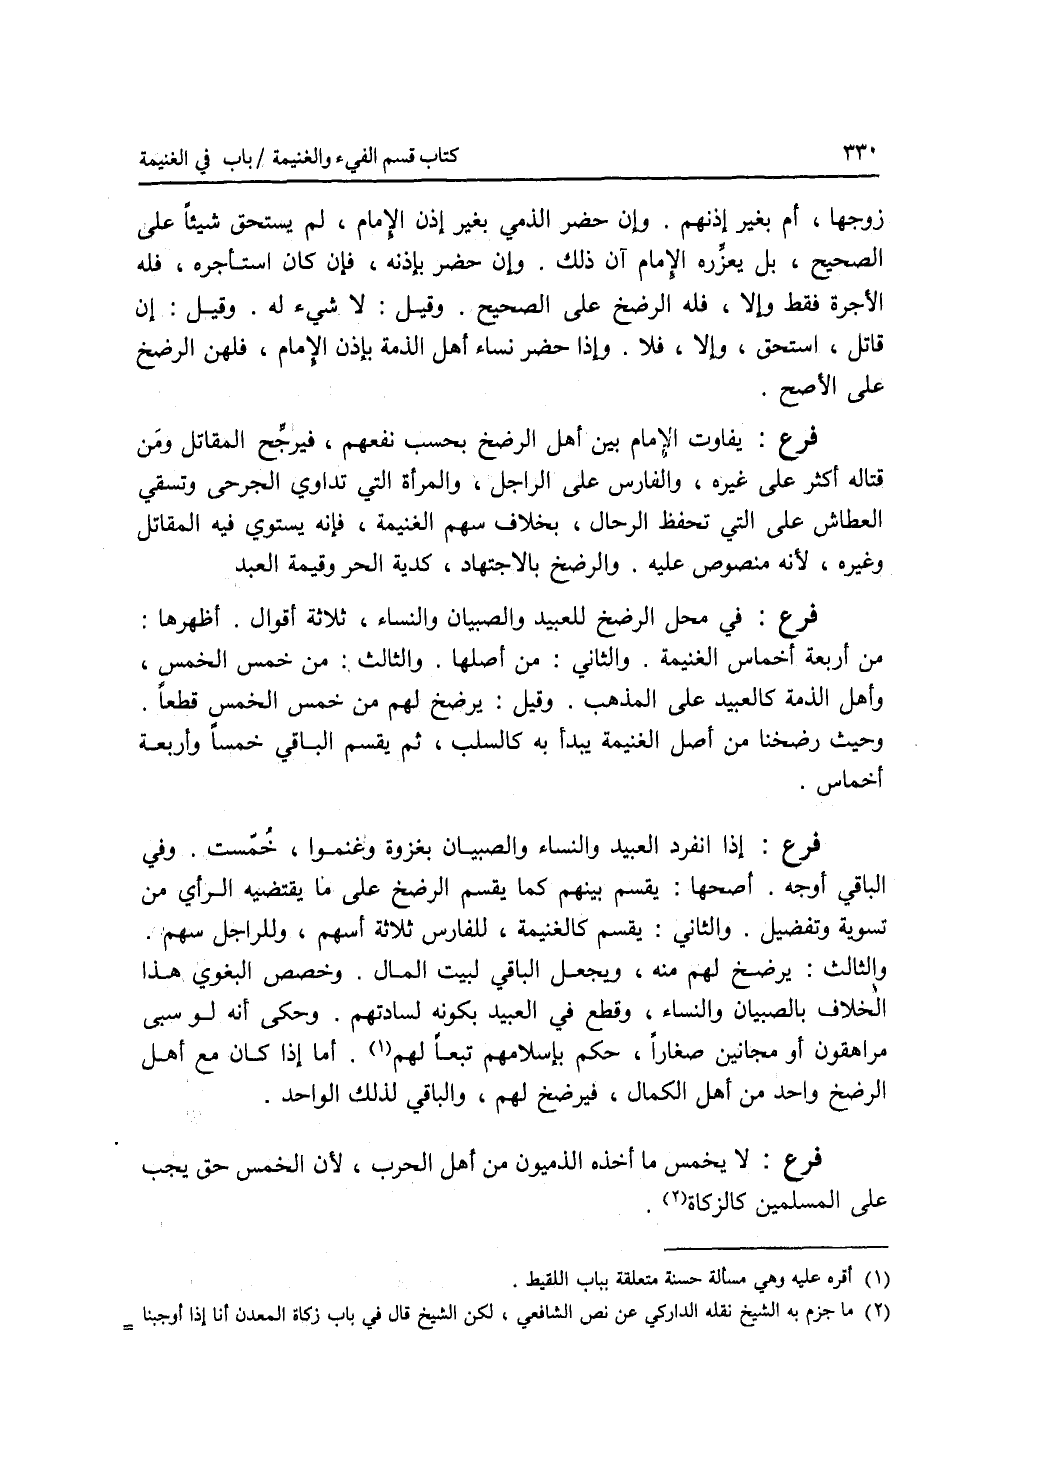 ٣٣٠
كتاب قسم الفيء والغنيمة / باب في الغنيمة
زوجها ، أم بغير إذنهم . وإن حضر الذمي بغير إذن الإمام ، لم يستحق شيئاً على
الصحيح ، بل يعزِّره الإمام آن ذلك . وإن حضر بإذنه ، فإن كان استأجره ، فله
الأجرة فقط وإلا ، فله الرضخ على الصحيح . وقيل : لا شيء له . وقيل : إن
قاتل ، استحق ، وإلا ، فلا . وإذا حضر نساء أهل الذمة بإذن الإمام ، فلهن الرضخ
على الأصح .
فرع : يفاوت الإمام بين أهل الرضخ بحسب نفعهم ، فيرجِّح المقاتل ومَن
قتاله أكثر على غيره ، والفارس على الراجل ، والمرأة التي تداوي الجرحى وتسقي
العطاش على التي تحفظ الرحال ، بخلاف سهم الغنيمة ، فإنه يستوي فيه المقاتل
وغيره ، لأنه منصوص عليه . والرضخ بالاجتهاد ، كدية الحر وقيمة العبد
فرع : في محل الرضخ للعبيد والصبيان والنساء ، ثلاثة أقوال . أظهرها :
من أربعة أخماس الغنيمة . والثاني : من أصلها . والثالث : من خمس الخمس ،
وأهل الذمة كالعبيد على المذهب . وقيل : يرضخ لهم من خمس الخمس قطعاً .
وحيث رضخنا من أصل الغنيمة يبدأ به كالسلب ، ثم يقسم الباقي خمساً وأربعة
أخماس .
فرع : إذا انفرد العبيد والنساء والصبيان بغزوة وغنموا ، خُمّست . وفي
الباقي أوجه . أصحها : يقسم بينهم كما يقسم الرضخ على ما يقتضيه الرأي من
تسوية وتفضيل . والثاني : يقسم كالغنيمة ، للفارس ثلاثة أسهم ، وللراجل سهم .
والثالث : يرضخ لهم منه ، ويجعل الباقي لبيت المال . وخصص البغوي هذا
الخلاف بالصبيان والنساء ، وقطع في العبيد بكونه لسادتهم . وحكى أنه لو سبى
مراهقون أو مجانين صغاراً ، حكم بإسلامهم تبعاً لهم(١) . أما إذا كان مع أهل
الرضخ واحد من أهل الكمال ، فيرضخ لهم ، والباقي لذلك الواحد .
فرع : لا يخمس ما أخذه الذميون من أهل الحرب ، لأن الخمس حق يجب
على المسلمين كالزكاة(٢) .
(١) أقره عليه وهي مسألة حسنة متعلقة بباب اللقيط .
(٢) ما جزم به الشيخ نقله الداركي عن نص الشافعي ، لكن الشيخ قال في باب زكاة المعدن أنا إذا أوجبنا =